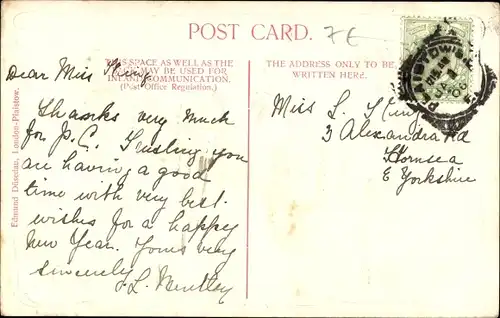 POST CARD.
7E
THIS SPACE AS WELL AS THE
BACK MAY BE USED FOR
INLAND COMMUNICATION.
(Post Office Regulation.)
THE ADDRESS ONLY TO BE
WRITTEN HERE.
Dear Miss
Thanks very much
for P.C. Trusting you
are having a good
time with very best
wishes for a happy
New Year. Yours very
sincerely
Miss L.
3 Alexandra Rd
Hornsea
E Yorkshire
London-Plaistow.